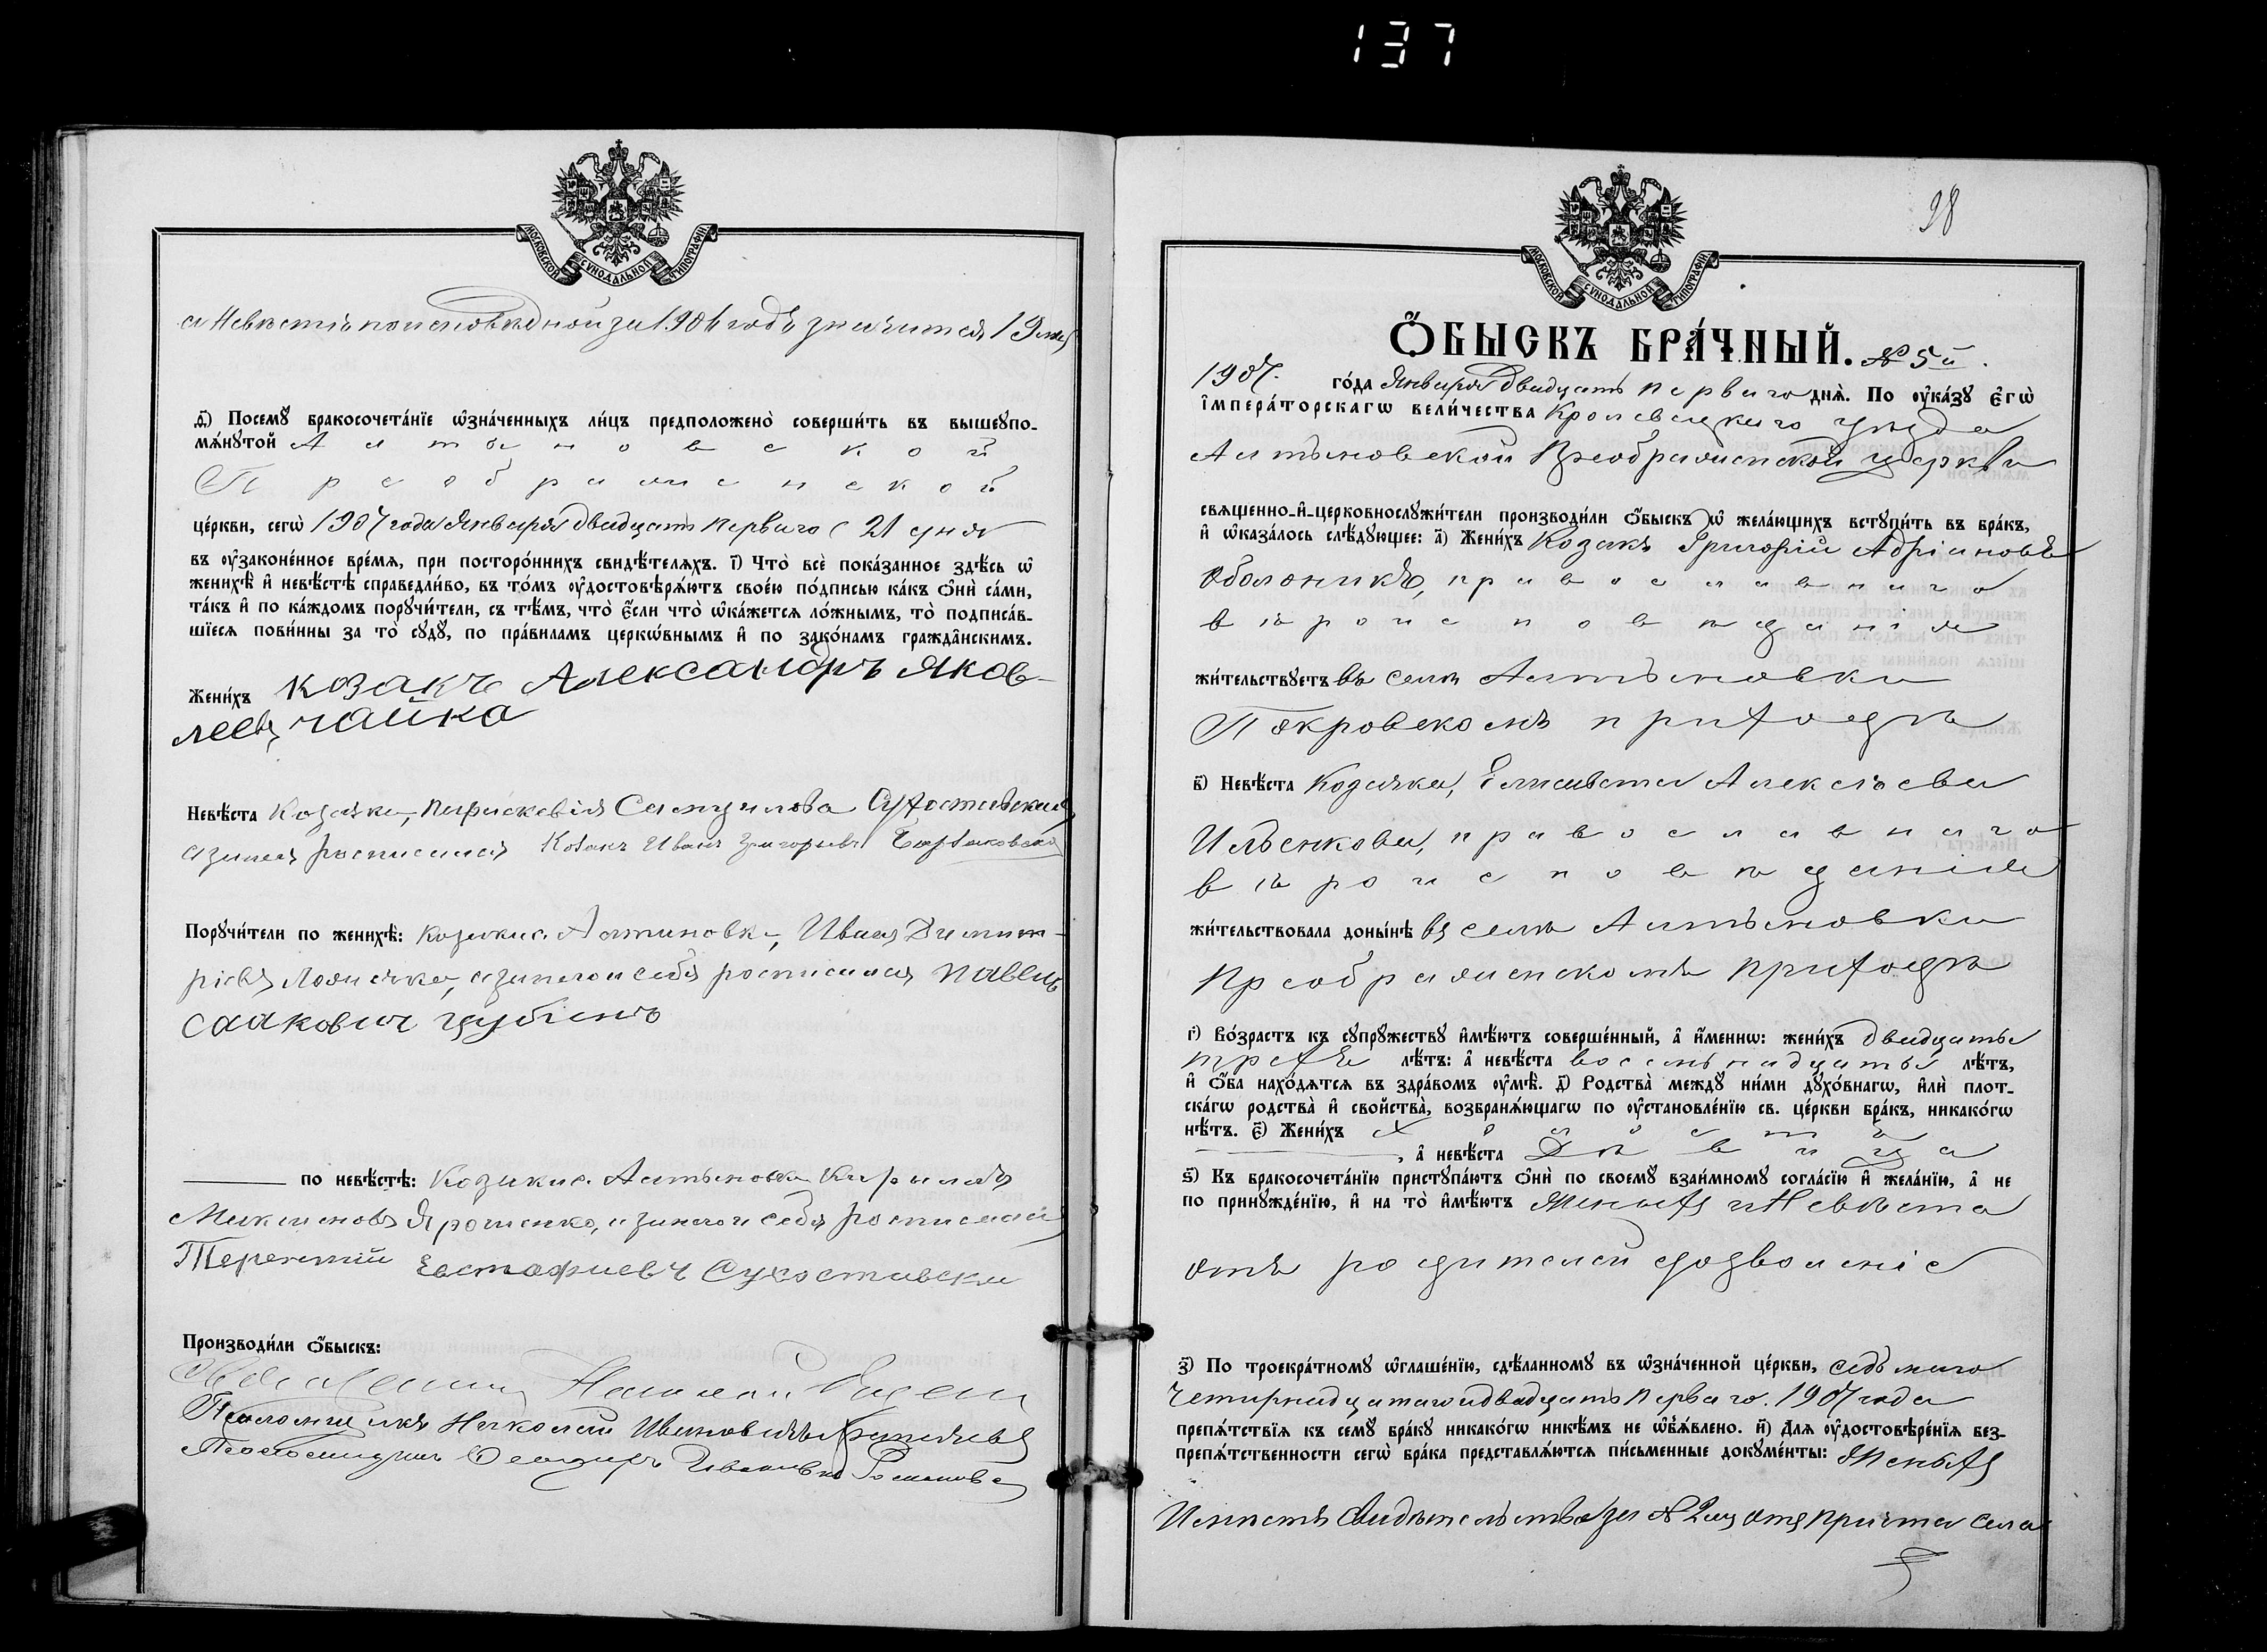 137
МОСКОВСКОЙ СУНОДАЛЬНОЙ ТИПОГРАФІИ
а Невѣста по исповѣдной за 1906 годъ значится 19 лѣтъ
д҃і) Посемꙋ̀ бракосочета́нїе ѡ҆зна́ченныхъ ли́цъ предположено̀ соверши́ть въ вышеꙋпо-
мѧ́нꙋтой Алтыновской
Преображенской
це́ркви, сегѡ̀ 1907 года Января двадцать перваго (21 дня
въ ᲂу҆законе́нное вре́мѧ, при посторо́ннихъ свидѣ́телѧхъ. і҃) Что̀ всѐ пока́занное здѣ́сь ѡ҆
женихѣ̀ и҆ невѣ́стѣ справедли́во, въ то́мъ ᲂу҆достовѣрѧ́ютъ свое́ю по́дписью ка́къ ѻ҆нѝ са́ми,
та́къ и҆ по ка́ждомъ порꙋчи́тели, съ тѣ́мъ, что̀ є҆́сли что̀ ѡ҆ка́жетсѧ ло́жнымъ, то̀ подписа́в-
шїесѧ пови́нны за то̀ сꙋдꙋ̀, по пра́виламъ церкѡ́внымъ и҆ по зако́намъ гражда́нскимъ.
Жени́хъ козакъ Александръ Яков-
левъ чайка
Невѣ́ста Козачка, Параскевія Самуилова Сухоставская
а за нея росписался Козакъ Иванъ Григорьевъ
Порꙋчи́тели по женихѣ̀: козаки с. Алтиновки, Иванъ Димит-
ріевъ а за него и себя росписался Павелъ
Саакович
по невѣ́стѣ: Козаки с. Алтыновки Кирилъ
Максимовъ Ярошенко, а за него и себя росписался
Терентий Евстафиевъ Сухоставски
Производи́ли ѻ҆́быскъ:
Псаломщикъ Николай Ивановичъ
98
МОСКОВСКОЙ СУНОДАЛЬНОЙ ТИПОГРАФІИ
Ѻ҆́БЫСКЪ БРА́ЧНЫЙ. № 5й.
1907. го́да Января двадцать перваго днѧ̀. По ᲂу҆ка́зꙋ є҆гѡ̀
і҆мпера́торскагѡ вели́чества Кролевецкаго уѣзда
Алтыновской Преображенской церкви
свѧщенно-и҆-церковнослꙋжи́тели производи́ли ѻ҆́быскъ ѡ҆ жела́ющихъ встꙋпи́ть въ бра́къ,
и҆ ѡ҆каза́лось слѣ́дꙋющее: а҃) Жени́хъ Козакъ Григорій Адріановъ
Оболоникъ, православнаго
вѣроисповѣданія
жи́тельствꙋетъ въ селѣ Алтыновки
Покровскомъ приходѣ
в҃) Невѣ́ста Козачка, Елисавета Алексѣева
Ильенкова, православнаго
вѣроисповѣданія
жи́тельствовала доны́нѣ въ селѣ Алтыновки
Преображенскомъ приходѣ
г҃) Во́зрастъ къ сꙋпрꙋ́жествꙋ и҆мѣ́ютъ соверше́нный, а҆ и҆́меннѡ: жени́хъ двадцать
трехъ лѣ́тъ: а҆ невѣ́ста восемьнадцать лѣ́тъ,
и҆ ѻ҆́ба нахо́дѧтсѧ въ здра́вомъ ᲂу҆мѣ̀. д҃) Родства̀ междꙋ̀ ни́ми дꙋхо́внагѡ, и҆лѝ плот-
ска́гѡ родства̀ и҆ свойства̀, возбранѧ́ющагѡ по ᲂу҆становле́нїю св. це́ркви бра́къ, никако́гѡ
нѣ́тъ. є҃) Жени́хъ холостъ
, а҆ невѣ́ста Дѣвица
ѕ҃) Къ бракосочета́нїю пристꙋпа́ютъ ѻ҆нѝ по своемꙋ̀ взаи́мномꙋ согла́сїю и҆ жела́нїю, а҆ не
по принꙋжде́нїю, и҆ на то̀ и҆мѣ́ютъ Женихъ и Невѣста
отъ родителей дозволеніе
з҃) По троекра́тномꙋ ѡ҆глаше́нїю, сдѣ́ланномꙋ въ ѡ҆зна́ченной це́ркви, седьмаго
четирнадцатаго и двадцать перваго. 1907 года
препѧ́тствїѧ къ семꙋ̀ бра́кꙋ никако́гѡ никѣ́мъ не ѡ҆б̾ѧ́влено. и҃) Длѧ ᲂу҆достовѣре́нїѧ без-
препѧ́тственности сегѡ̀ бра́ка представлѧ́ютсѧ пи́сьменные докꙋме́нты: Женихъ
Имѣетъ Свидѣтельство за № 2мъ отъ причта села